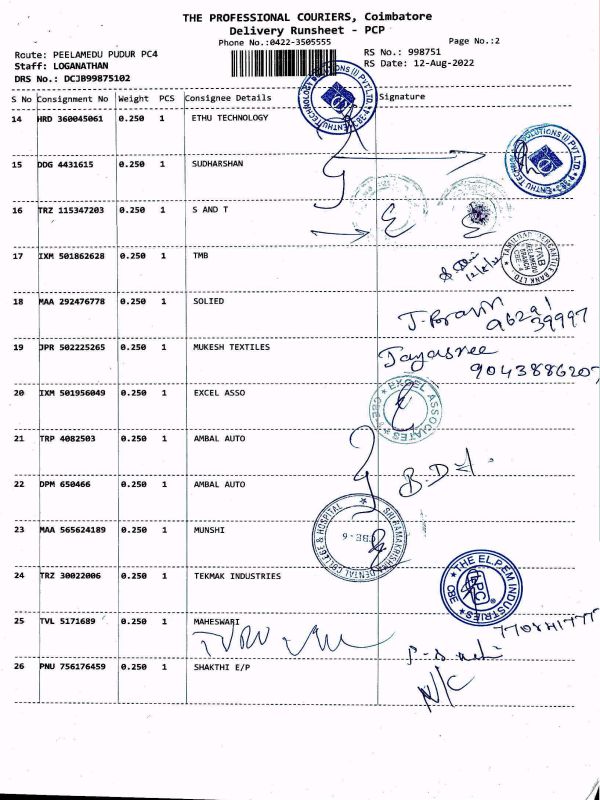 THE PROFESSIONAL COURIERS, Coimbatore
Delivery Runsheet - PCP
Phone No.:0422-3505555
Page No.:2
Route: PEELAMEDU PUDUR PC4
RS No.: 998751
Staff: LOGANATHAN
RS Date: 12-Aug-2022
DRS No.: DCJB99875102
S No Consignment No Weight PCS Consignee Details Signature
14 HRD 360045061 0.250 1 ETHU TECHNOLOGY
15 DDG 4431615 0.250 1 SUDHARSHAN
16 TRZ 115347203 0.250 1 S AND T
17 IXM 501862628 0.250 1 TMB
TAMILNAD MERCANTILE BANK LTD
TMB
PEELAMEDU
BRANCH
CBE - 4
18 MAA 292476778 0.250 1 SOLIED
39997
19 JPR 502225265 0.250 1 MUKESH TEXTILES
Jayasree
20 IXM 501956049 0.250 1 EXCEL ASSO
EXCEL ASSOCIATES
21 TRP 4082503 0.250 1 AMBAL AUTO
22 DPM 650466 0.250 1 AMBAL AUTO
23 MAA 565624189 0.250 1 MUNSHI
SRI RAMAKRISHNA DENTAL COLLEGE & HOSPITAL
CBE - 6
24 TRZ 30022006 0.250 1 TEKMAK INDUSTRIES
THE EL.P.EM INDUSTRIES
CBE
25 TVL 5171689 0.250 1 MAHESWARI
26 PNU 756176459 0.250 1 SHAKTHI E/P
N/C